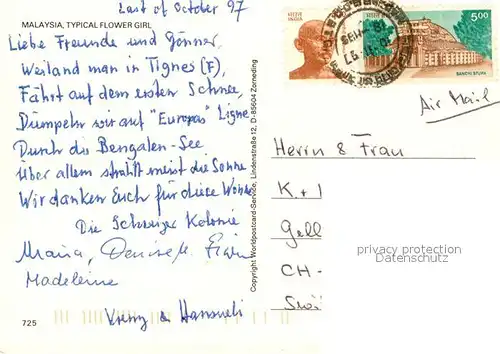 East of October 97
MALAYSIA, TYPICAL FLOWER GIRL
Liebe Freunde und Gönner,
Weiland man in Tignes (F),
Fährt auf dem ersten Schnee,
Dümpeln wir auf "Europas" Ligne
Durch die Bengalen-See
Über allem strahlt meist die Sonne
Wir danken Euch für diese Wonne
Die Schweizer Kolonie
Maria, Denise
Madeleine
& Hansueli
725
Copyright Worldpostcard-Service, Lindenstraße 12, D-85604 Zorneding
INDIA
INDIA
5.00
SANCHI STUPA
Air Mail
Herrn & Frau
K + I
Gell
CH -
privacy protection
Datenschutz